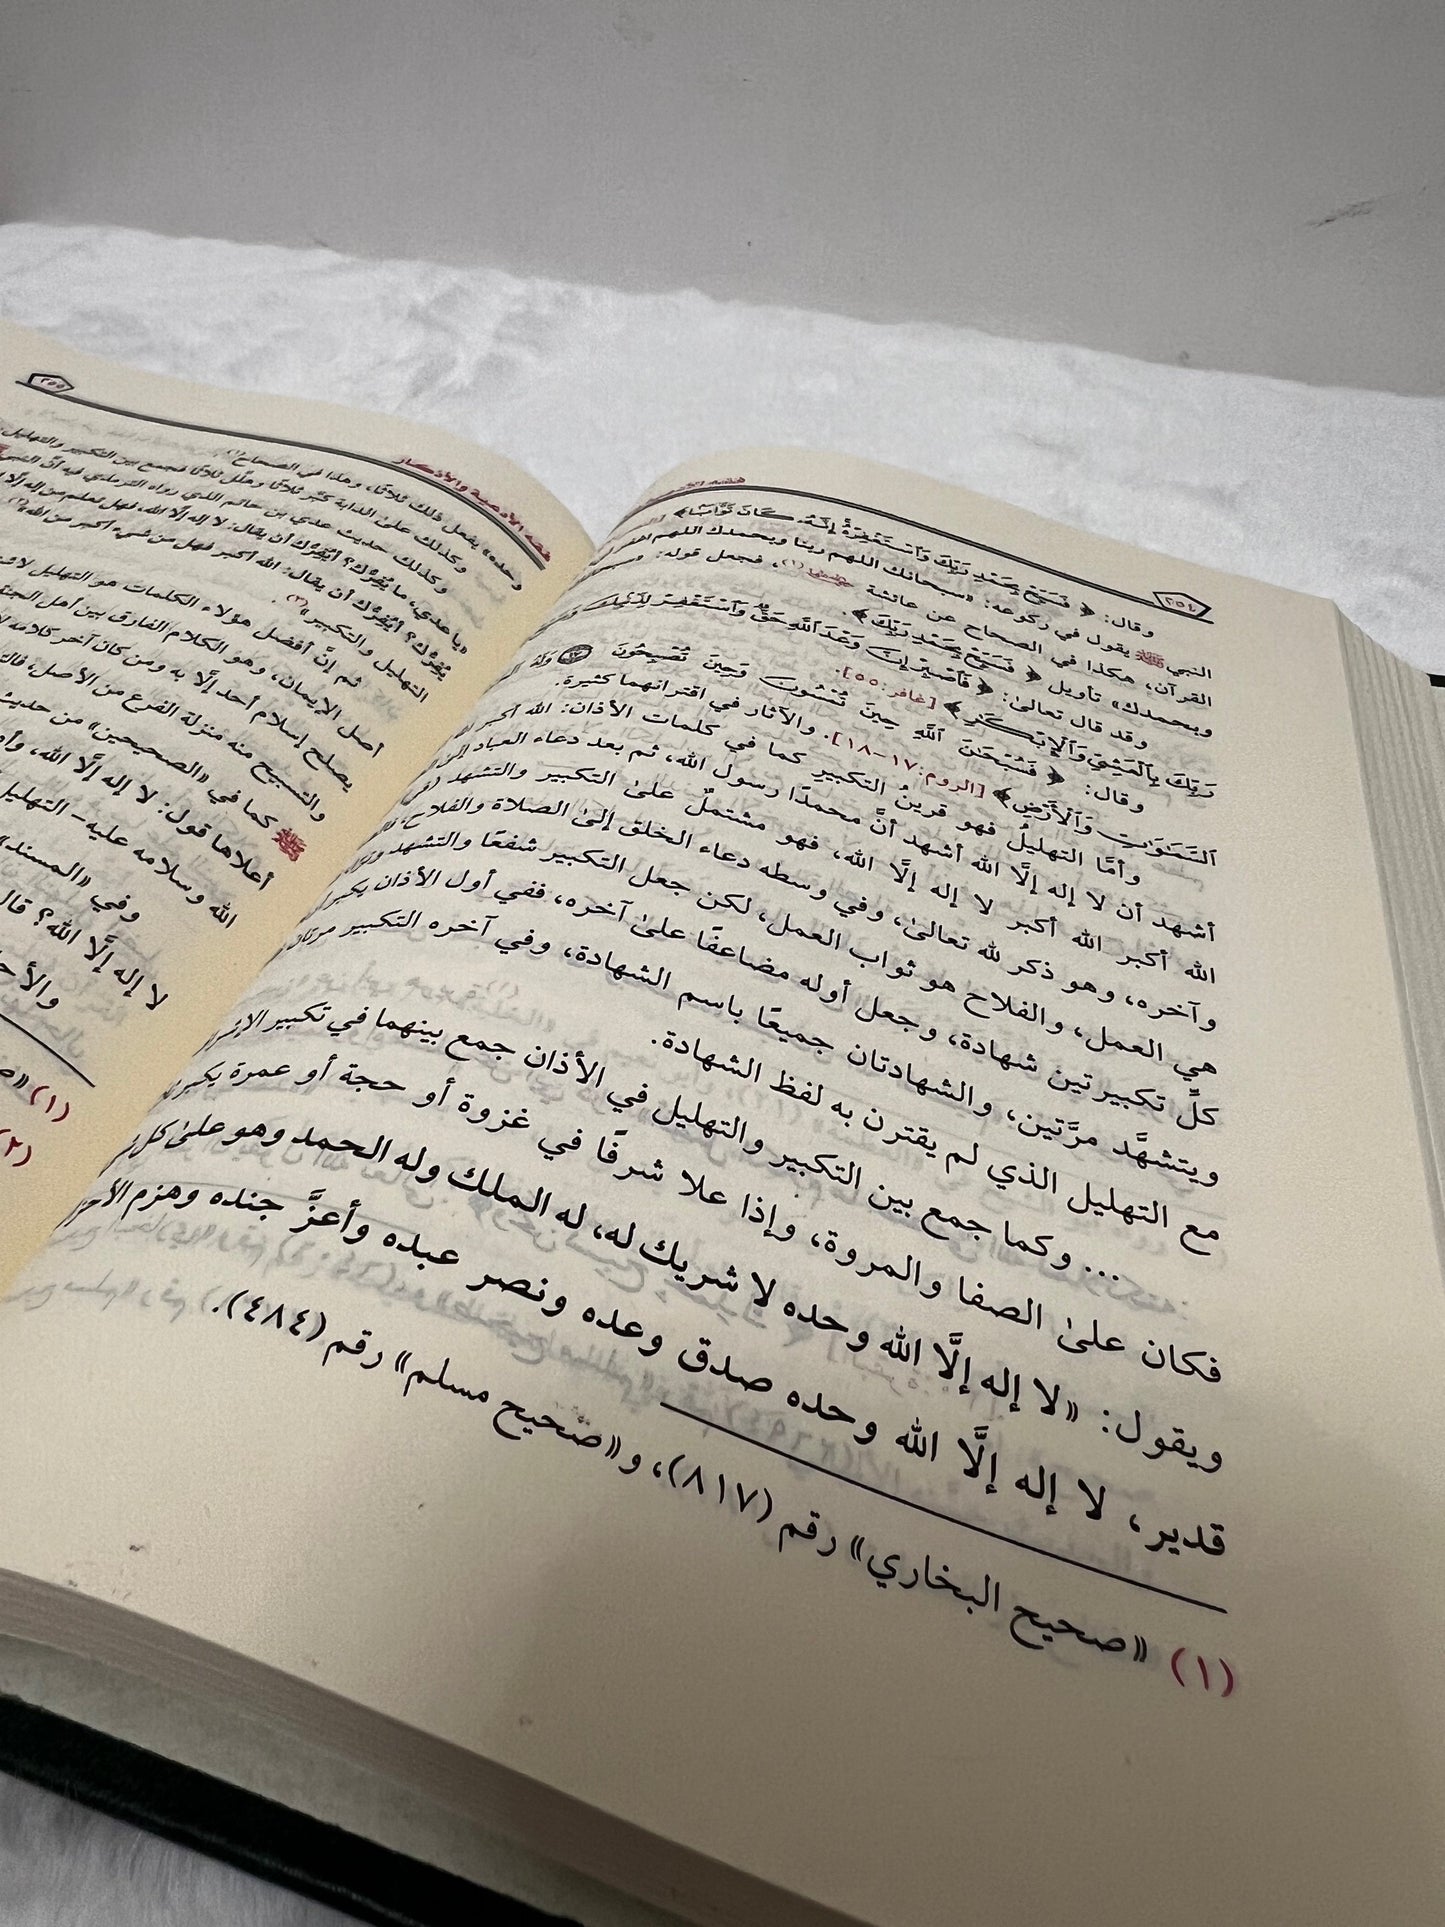 ٢٥٤
وقال: ﴿ فَسَبِّحْ بِحَمْدِ رَبِّكَ وَٱسْتَغْفِرْهُ إِنَّهُۥ كَانَ تَوَّابًۢا ﴾
النبي ﷺ يقول في ركوعه: «سبحانك اللهم ربنا وبحمدك اللهم
القرآن، هكذا في الصحاح عن عائشة رضي الله عنها (١)، فجعل قوله:
وبحمدك» تأويل ﴿ فَسَبِّحْ بِحَمْدِ رَبِّكَ ﴾.
وقد قال تعالىٰ: ﴿ فَٱصْبِرْ إِنَّ وَعْدَ ٱللَّهِ حَقٌّ وَٱسْتَغْفِرْ لِذَنۢبِكَ
رَبِّكَ بِٱلْعَشِيِّ وَٱلْإِبْكَٰرِ ﴾ [غافر:٥٥].
وقال: ﴿ فَسُبْحَٰنَ ٱللَّهِ حِينَ تُمْسُونَ وَحِينَ تُصْبِحُونَ ١٧ وَلَهُ
ٱلسَّمَٰوَٰتِ وَٱلْأَرْضِ ﴾ [الروم:١٧-١٨]. والآثار في اقترانهما كثيرة.
وأمَّا التهليلُ فهو قرينُ التكبيرِ كما في كلمات الأذان: الله أكبر
أشهد أن لا إله إلَّا الله أشهد أنَّ محمدًا رسول الله، ثم بعد دعاء العباد إلىٰ
الله أكبر الله أكبر لا إله إلَّا الله، فهو مشتملٌ علىٰ التكبير والتشهد
وآخره، وهو ذكر لله تعالىٰ، وفي وسطه دعاء الخلق إلىٰ الصلاة والفلاح،
هي العمل، والفلاح هو ثواب العمل، لكن جعل التكبير شفعًا والتشهد
كلِّ تكبيرتين شهادة، وجعل أوله مضاعفًا علىٰ آخره، ففي أول الأذان يكبر
ويتشهَّد مرَّتين، والشهادتان جميعًا باسم الشهادة، وفي آخره التكبير مرتان
مع التهليل الذي لم يقترن به لفظ الشهادة.
... وكما جمع بين التكبير والتهليل في الأذان جمع بينهما في تكبير
فكان علىٰ الصفا والمروة، وإذا علا شرفًا في غزوة أو حجة أو عمرة يكبر
ويقول: «لا إله إلَّا الله وحده لا شريك له، له الملك وله الحمد وهو علىٰ كل
قدير، لا إله إلَّا الله وحده صدق وعده ونصر عبده وأعزَّ جنده وهزم
(١) «صحيح البخاري» رقم (٨١٧)، و«صحيح مسلم» رقم (٤٨٤).
فقه الأدعية والأذكار
٢٥٥
وحده» يفعل ذلك ثلاثًا، وهذا في الصحاح(١).
وكذلك علىٰ الدابة كبَّر ثلاثًا وهلَّل ثلاثًا فجمع بين التكبير والتهليل.
وكذلك حديث عدي بن حاتم الذي رواه الترمذي فيه أنَّ النبي
«يا عدي، ما يُفِرُّك؟ أيُفِرُّك أن يقال: لا إله إلَّا الله، فهل تعلم من إله إلَّا
يُفِرُّك؟ أيُفِرُّك أن يقال: الله أكبر فهل من شيء أكبر من الله»(٢)
التهليل والتكبير»(٣).
ثم إنَّ أفضل هؤلاء الكلمات هو التهليل
أصل الإيمان، وهو الكلام الفارق بين أهل الجنة
يصلح إسلام أحد إلَّا به ومن كان آخر كلامه
والتسبيح منه منزلة الفرع من الأصل،
ﷺ كما في «الصحيحين» من حديث
أعلاها قول: لا إله إلَّا الله،
الله وسلامه عليه- التهليل
وفي «المسند»
لا إله إلَّا الله؟ قال
(١)
(٢)